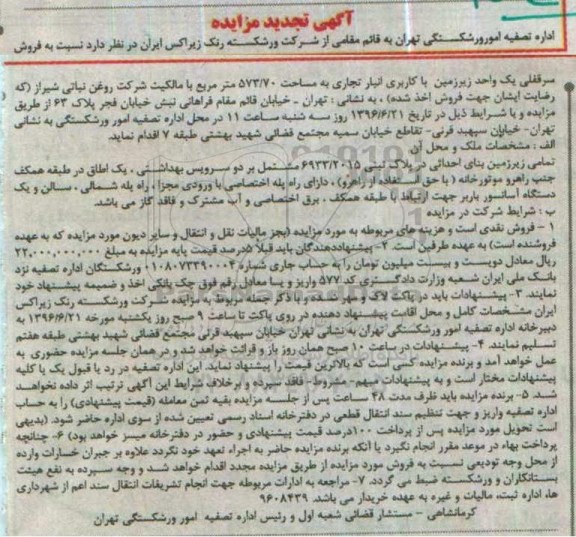 آگهی تجدید مزایده
اداره تصفیه امورورشکستگی تهران به قائم مقامی از شرکت ورشکسته رنگ زیراکس ایران در نظر دارد نسبت به فروش
سرقفلی یک واحد زیرزمین با کاربری انبار تجاری به ساحت ۵۷۳/۷۰ متر مربع با مالکیت شرکت روغن نباتی شیراز (که
رضایت ایشان جهت فروش اخذ شده) ، به نشانی : تهران - خیابان قائم مقام فراهانی نبش خیابان فجر پلاک ۶۳ از طریق
مزایده و با شرایط ذیل در تاریخ ۱۳۹۶/۶/۲۱ روز سه شنبه ساعت ۱۱ در محل اداره تصفیه امور ورشکستگی به نشانی
تهران- خیابان سپهبد قرنی- تقاطع خیابان سمیه مجتمع قضائی شهید بهشتی طبقه ۷ اقدام نماید.
الف : مشخصات ملک و محل آن
تمامی زیرزمین بنای احداثی در پلاک ثبتی ۶۹۳۳/۲۰۱۵ مشتمل بر دو سرویس بهداشتی ، یک اطاق در طبقه همکف
جنب راهرو موتورخانه ( با حق استفاده از راهرو) ، دارای راه پله اختصاصی با ورودی مجزا ، راه پله شمالی ، سالن و یک
دستگاه آسانسور باربر جهت ارتباط با طبقه همکف ، برق اختصاصی و آب مشترک و فاقد گاز می باشد.
ب : شرایط شرکت در مزایده
۱ - فروش نقدی است و هزینه های مربوطه به مورد مزایده (بجز مالیات نقل و انتقال و سایر دیون مورد مزایده که به عهده
فروشنده است) به عهده طرفین است. ۲- پیشنهاددهندگان باید قبلاً ۵درصد قیمت پایه مزایده به مبلغ ۲۲,۰۰۰,۰۰۰,۰۰۰
ریال معادل دویست و بیست میلیون تومان را به حساب جاری شماره ۰۱۰۸۰۷۳۳۹۰۰۰۴ ورشکستگان اداره تصفیه نزد
بانک ملی ایران شعبه وزارت دادگستری کد ۵۷۷ واریز و یا معادل رقم فوق چک بانکی اخذ و ضمیمه پیشنهاد خود
نمایند. ۳- پیشنهادات باید در پاکت لاک و مهر شده و با ذکر جمله مربوط به مزایده شرکت ورشکسته رنگ زیراکس
ایران مشخصات کامل و محل اقامت پیشنهاد دهنده در روی پاکت تا ساعت ۹ صبح روز یکشنبه مورخه ۱۳۹۶/۶/۲۱ به
دبیرخانه اداره تصفیه امور ورشکستگی تهران به نشانی تهران خیابان سپهبد قرنی مجتمع قضائی شهید بهشتی طبقه هفتم
تسلیم نمایند. ۴- پیشنهادات در ساعت ۱۰ صبح همان روز باز و قرائت خواهد شد و در همان جلسه مزایده حضوری به
عمل خواهد آمد و برنده مزایده کسی است که بالاترین قیمت را پیشنهاد نماید. این اداره تصفیه در رد یا قبول یک یا کلیه
پیشنهادات مختار است و به پیشنهادات مبهم- مشروط- فاقد سپرده و برخلاف شرایط این آگهی ترتیب اثر داده نخواهد
شد. ۵- برنده مزایده باید ظرف مدت ۴۸ ساعت پس از جلسه مزایده بقیه ثمن معامله (قیمت پیشنهادی) را به حساب
اداره تصفیه واریز و جهت تنظیم سند انتقال قطعی در دفترخانه اسناد رسمی تعیین شده از سوی اداره حاضر شود. (بدیهی
است تحویل مورد مزایده پس از پرداخت ۱۰۰درصد قیمت پیشنهادی و حضور در دفترخانه میسر خواهد بود) ۶- چنانچه
پرداخت بهاء در موعد مقرر انجام نگیرد یا آنکه برنده مزایده حاضر به اجراء تعهد خود نگردد علاوه بر جبران خسارات وارده
از محل وجه تودیعی نسبت به فروش مورد مزایده از طریق مزایده مجدد اقدام خواهد شد و وجه سپرده به نفع هیئت
بستانکاران و ورشکسته ضبط می گردد. ۷- مراجعه به ادارات مربوطه جهت انجام تشریفات انتقال سند اعم از شهرداری
ها، اداره ثبت، مالیات و غیره به عهده خریدار می باشد. ۹۶۰۸۴۳۹
کرمانشاهی - مستشار قضائی شعبه اول و رئیس اداره تصفیه امور ورشکستگی تهران